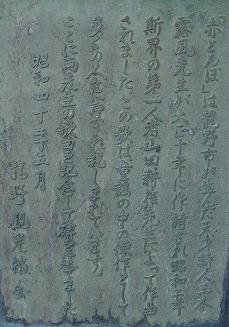 「赤とんぼ」は龍野市が生んだ天才詩人三木
露風先生が大正十年に作詩され昭和二年
斯界の第一人者山田耕作先生によって作曲
されましたこの歌は童謡の中の傑作として
多くの人に愛され親しまれています。
ここに両先生の歌曲を記念して碑を建てました
昭和四十年五月
龍野観光協会